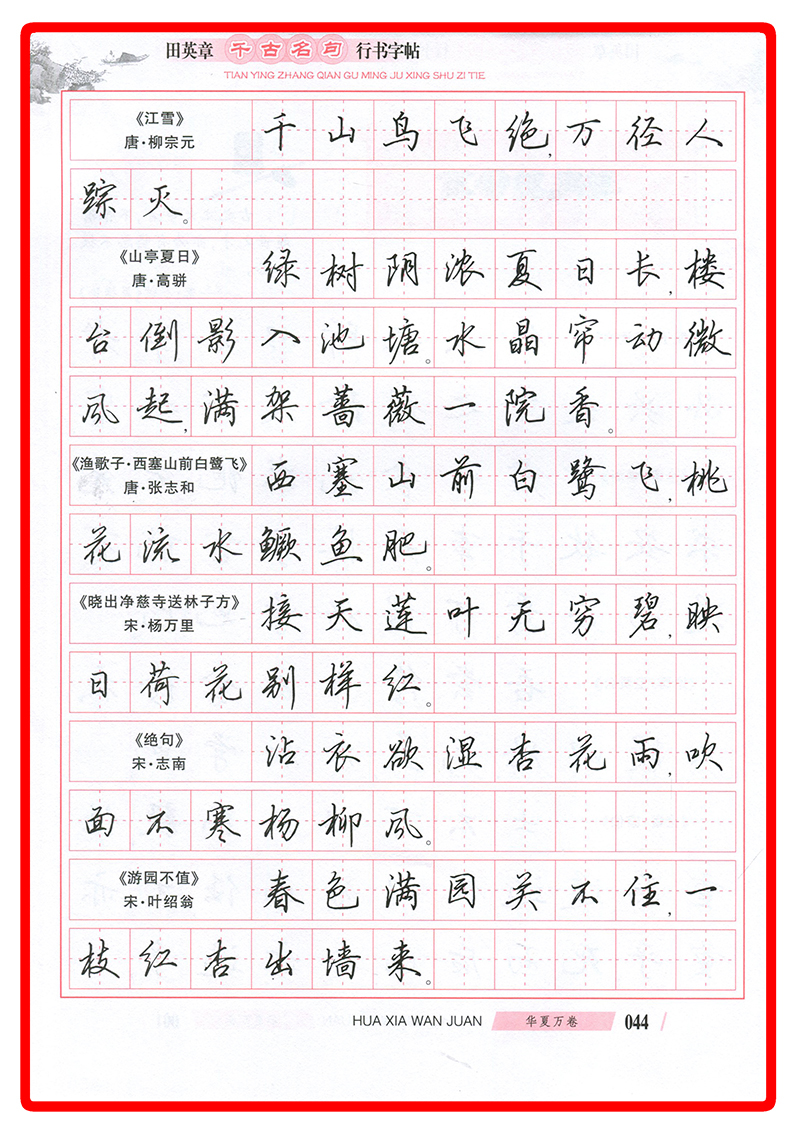 田英章 千古名句 行书字帖
TIAN YING ZHANG QIAN GU MING JU XING SHU ZI TIE
《江雪》
唐·柳宗元
千山鸟飞绝,万径人
踪灭。
《山亭夏日》
唐·高骈
绿树阴浓夏日长,楼
台倒影入池塘。水晶帘动微
风起,满架蔷薇一院香。
《渔歌子·西塞山前白鹭飞》
唐·张志和
西塞山前白鹭飞,桃
花流水鳜鱼肥。
《晓出净慈寺送林子方》
宋·杨万里
接天莲叶无穷碧,映
日荷花别样红。
《绝句》
宋·志南
沾衣欲湿杏花雨,吹
面不寒杨柳风。
《游园不值》
宋·叶绍翁
春色满园关不住,一
枝红杏出墙来。
HUA XIA WAN JUAN 华夏万卷 044